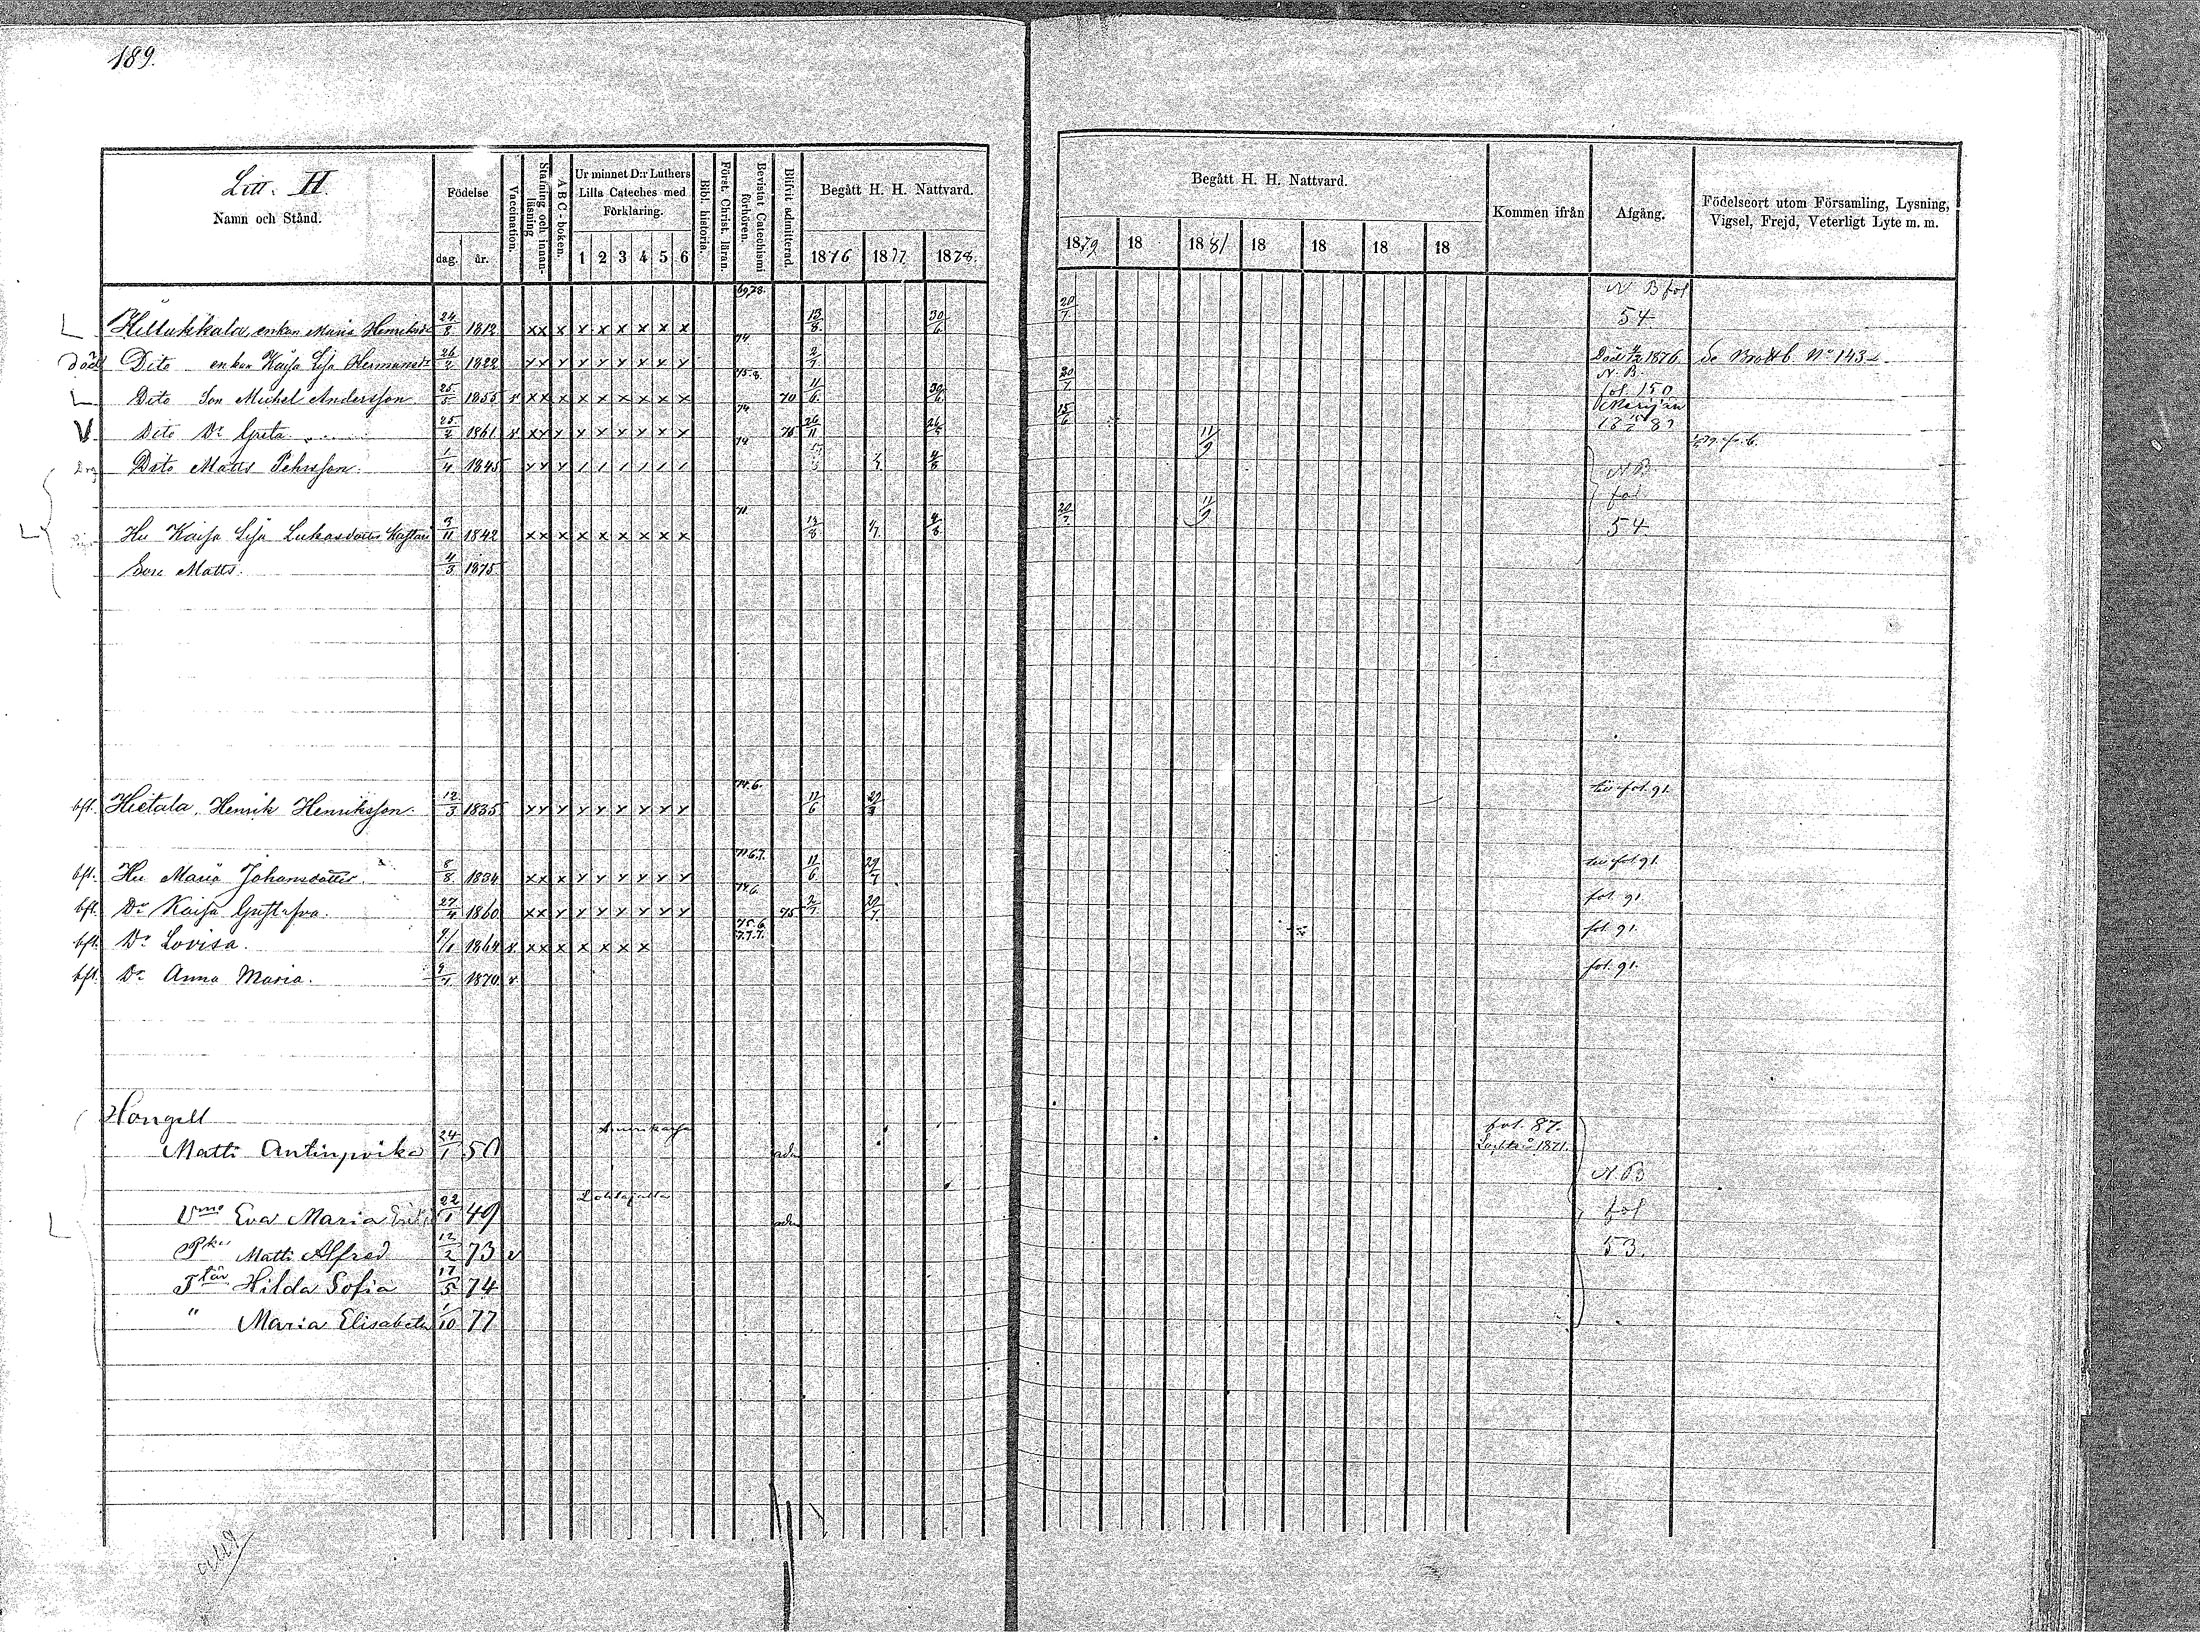 189.
Litt. H
Namn och Stånd.
Födelse
dag. år.
Vaccination.
Stafning och innanläsning
ABC-boken.
Ur minnet D:r Luthers Lilla Cateches med Förklaring.
1 2 3 4 5 6
Bibl. historia.
Först. Christ. läran.
Bevistat Catechismi förhören.
Blifvit admitterad.
Begått H. H. Nattvard.
1876 1877. 1878.
Begått H. H. Nattvard.
1879 18 1881 18 18 18 18
Kommen ifrån
Afgång.
Födelseort utom Församling, Lysning, Vigsel, Frejd, Veterligt Lyte m. m.
69,78. N B fol
enkan Maria 24/8 1812 x x x x x x x x x 13/8 30/6 20/7 54
74
död Dito enkan Kaisa Lisa 26/2 1822 x x x x x x x x x 2/7 Död 1876. se Brottb. No 143
75.8. N. B.
Dito Son Michel Andersson 25/5 1855 v x x x x x x x x x 70 11/6 30/6 20/7 fol. 150
74
Dito Dr Greta 25/2 1861 v x x x x x x x x x 75 26/11 15/6 18 81
74
Dito Matts Pehrsson. 1/4 1845 x x x / / / / / / 1/7 4/8 11/9 N B
fol
71.
Hu Kaisa Lisa Lukasdotter 3/11 1842 x x x x x x x x x 13/8 1/7 4/8 20/7 11/9 54
Son Matts. 4/3 1875
74.6.
bft. Hietala, Henrik Henriksson 12/3 1835 x x x x x x x x x 11/6 fol. 91.
71.6.7.
bft. Hu Maria Johansdotter. 8/8 1834 x x x x x x x x x 11/6 29/7 fol 91.
74.6.
bft. Dr Kaisa Gustafva. 27/4 1860 x x x x x x x x x 75 2/7 29/7 fol. 91.
75.6.
77.7.
bft. Dr Lovisa. 9/1 1864 v x x x x x x x fol. 91.
bft. Dr Anna Maria. 9/1 1870 v. fol. 91.
Hongell
Amerikassa fol. 87.
Matti Antinpoika 24/1 50 1871.
N. B
Eva Maria 22/1 49 fol
Matti Alfred 12/2 73 v 53.
Ttär Hilda Sofia 17/5 74
" Maria Elisabeta 1/10 77